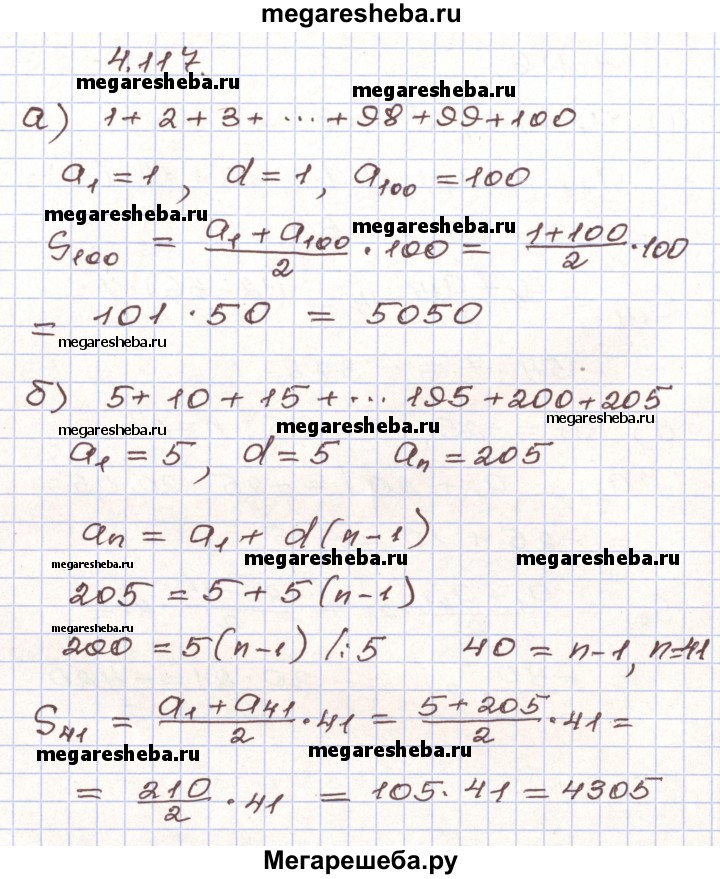 megaresheba.ru
4.117.
megaresheba.ru megaresheba.ru
а) 1 + 2 + 3 + ... + 98 + 99 + 100
a₁ = 1, d = 1, a₁₀₀ = 100
megaresheba.ru megaresheba.ru
S₁₀₀ = (a₁ + a₁₀₀)/2 · 100 = (1+100)/2 · 100
= 101 · 50 = 5050
megaresheba.ru
б) 5 + 10 + 15 + ... 195 + 200 + 205
megaresheba.ru megaresheba.ru megaresheba.ru
a₁ = 5, d = 5 aₙ = 205
aₙ = a₁ + d(n-1)
megaresheba.ru megaresheba.ru megaresheba.ru
205 = 5 + 5(n-1)
megaresheba.ru
200 = 5(n-1) /:5 40 = n-1, n=41
S₄₁ = (a₁ + a₄₁)/2 · 41 = (5 + 205)/2 · 41 =
megaresheba.ru megaresheba.ru
= 210/2 · 41 = 105 · 41 = 4305
Мегарешеба.ру